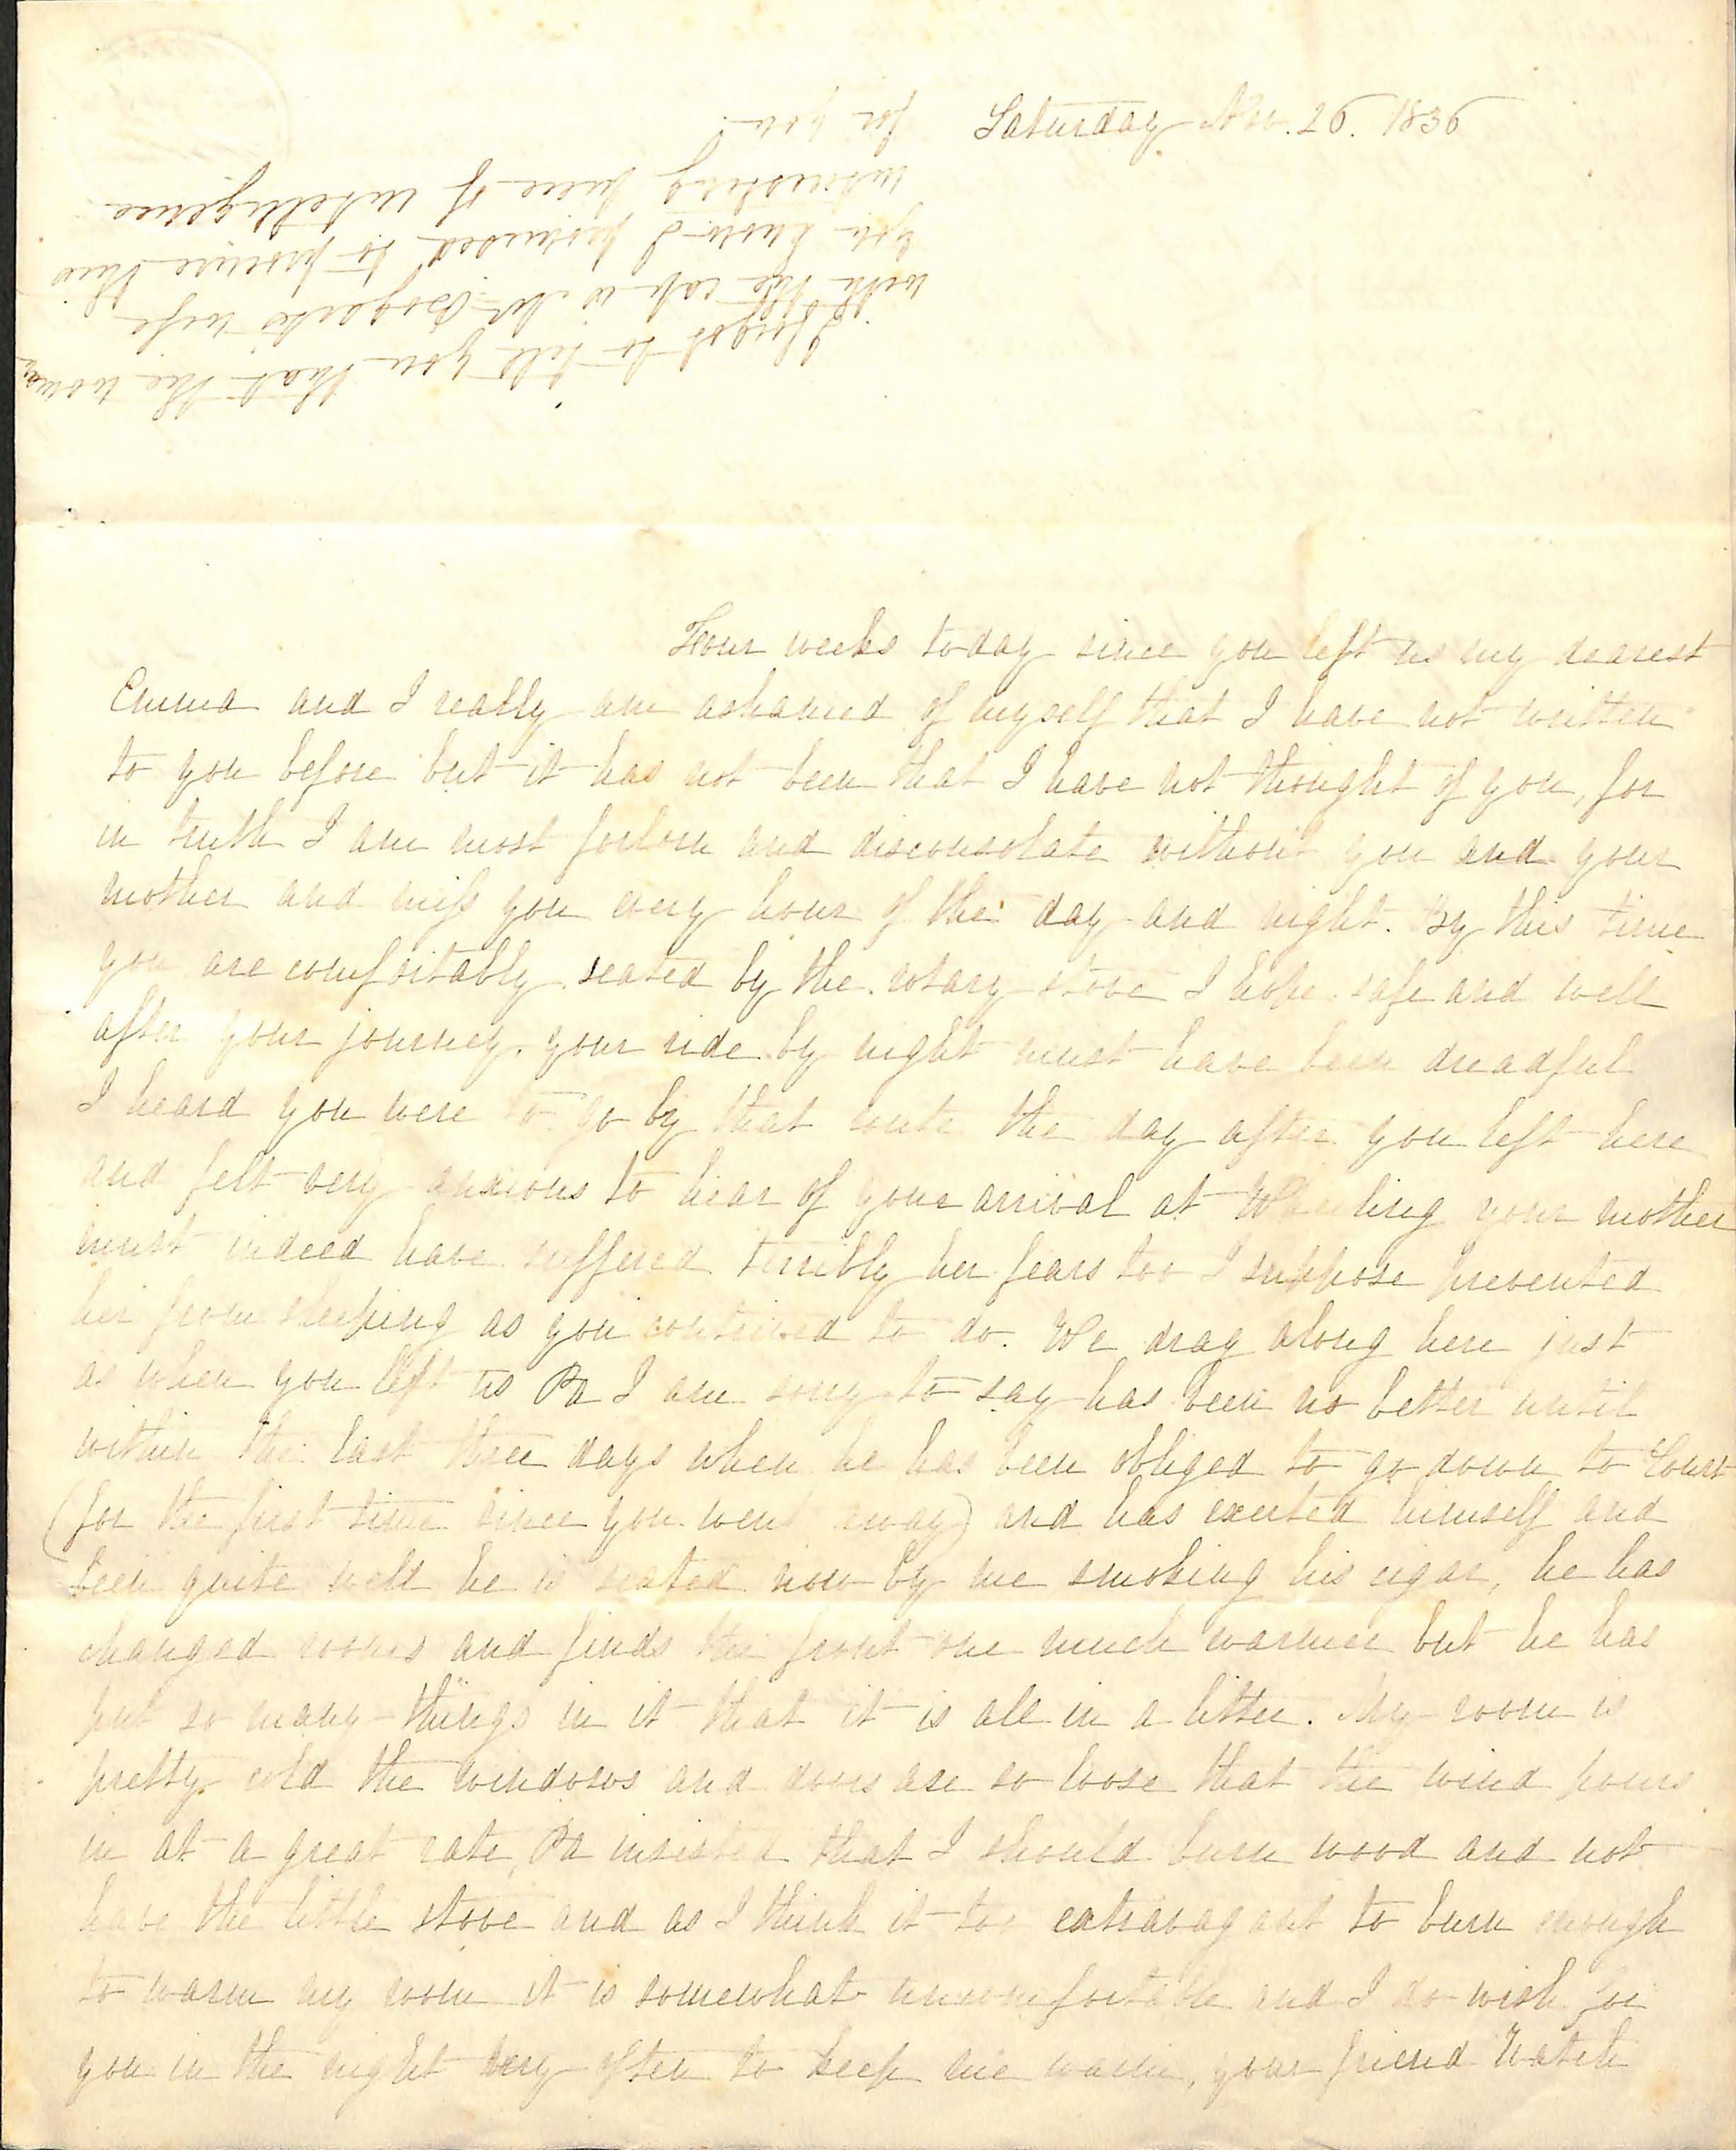 Saturday Nov. 26. 1836
I forgot to tell you that the woman
with the cap is Mr Bogarts wife
you know I promised to procure this
interesting piece of intelligence
for you.
Four weeks today since you left us my dearest
Emma and I really am ashamed of myself that I have not written
to you before but it has not been that I have not thought of you, for
in truth I am most forlorn and disconsolate without you and your
mother and miss you every hour of the day and night. By this time
you are comfortably seated by the rotary stove I hope safe and well
after your journey. your ride by night must have been dreadful
I heard you were to go by that route the day after you left here
and felt very anxious to hear of your arrival at Wheeling your mother
must indeed have suffered terribly her fears too I suppose prevented
her from sleeping as you contrived to do. We drag along here just
as when you left us Pa I am sorry to say has been no better until
within the last three days when he has been obliged to go down to Court
(for the first time since you went away) and has exerted himself and
been quite well he is seated now by me smoking his cigar, he has
changed rooms and finds the front one much warmer but he has
put so many things in it that it is all in a litter. My room is
pretty cold the windows and doors are so loose that the wind pours
in at a great rate, Pa insisted that I should burn wood and not
have the little stove and as I think it too extravagant to burn enough
to warm my room it is somewhat uncomfortable and I do wish for
you in the night very often to keep me warm, your friend Watch